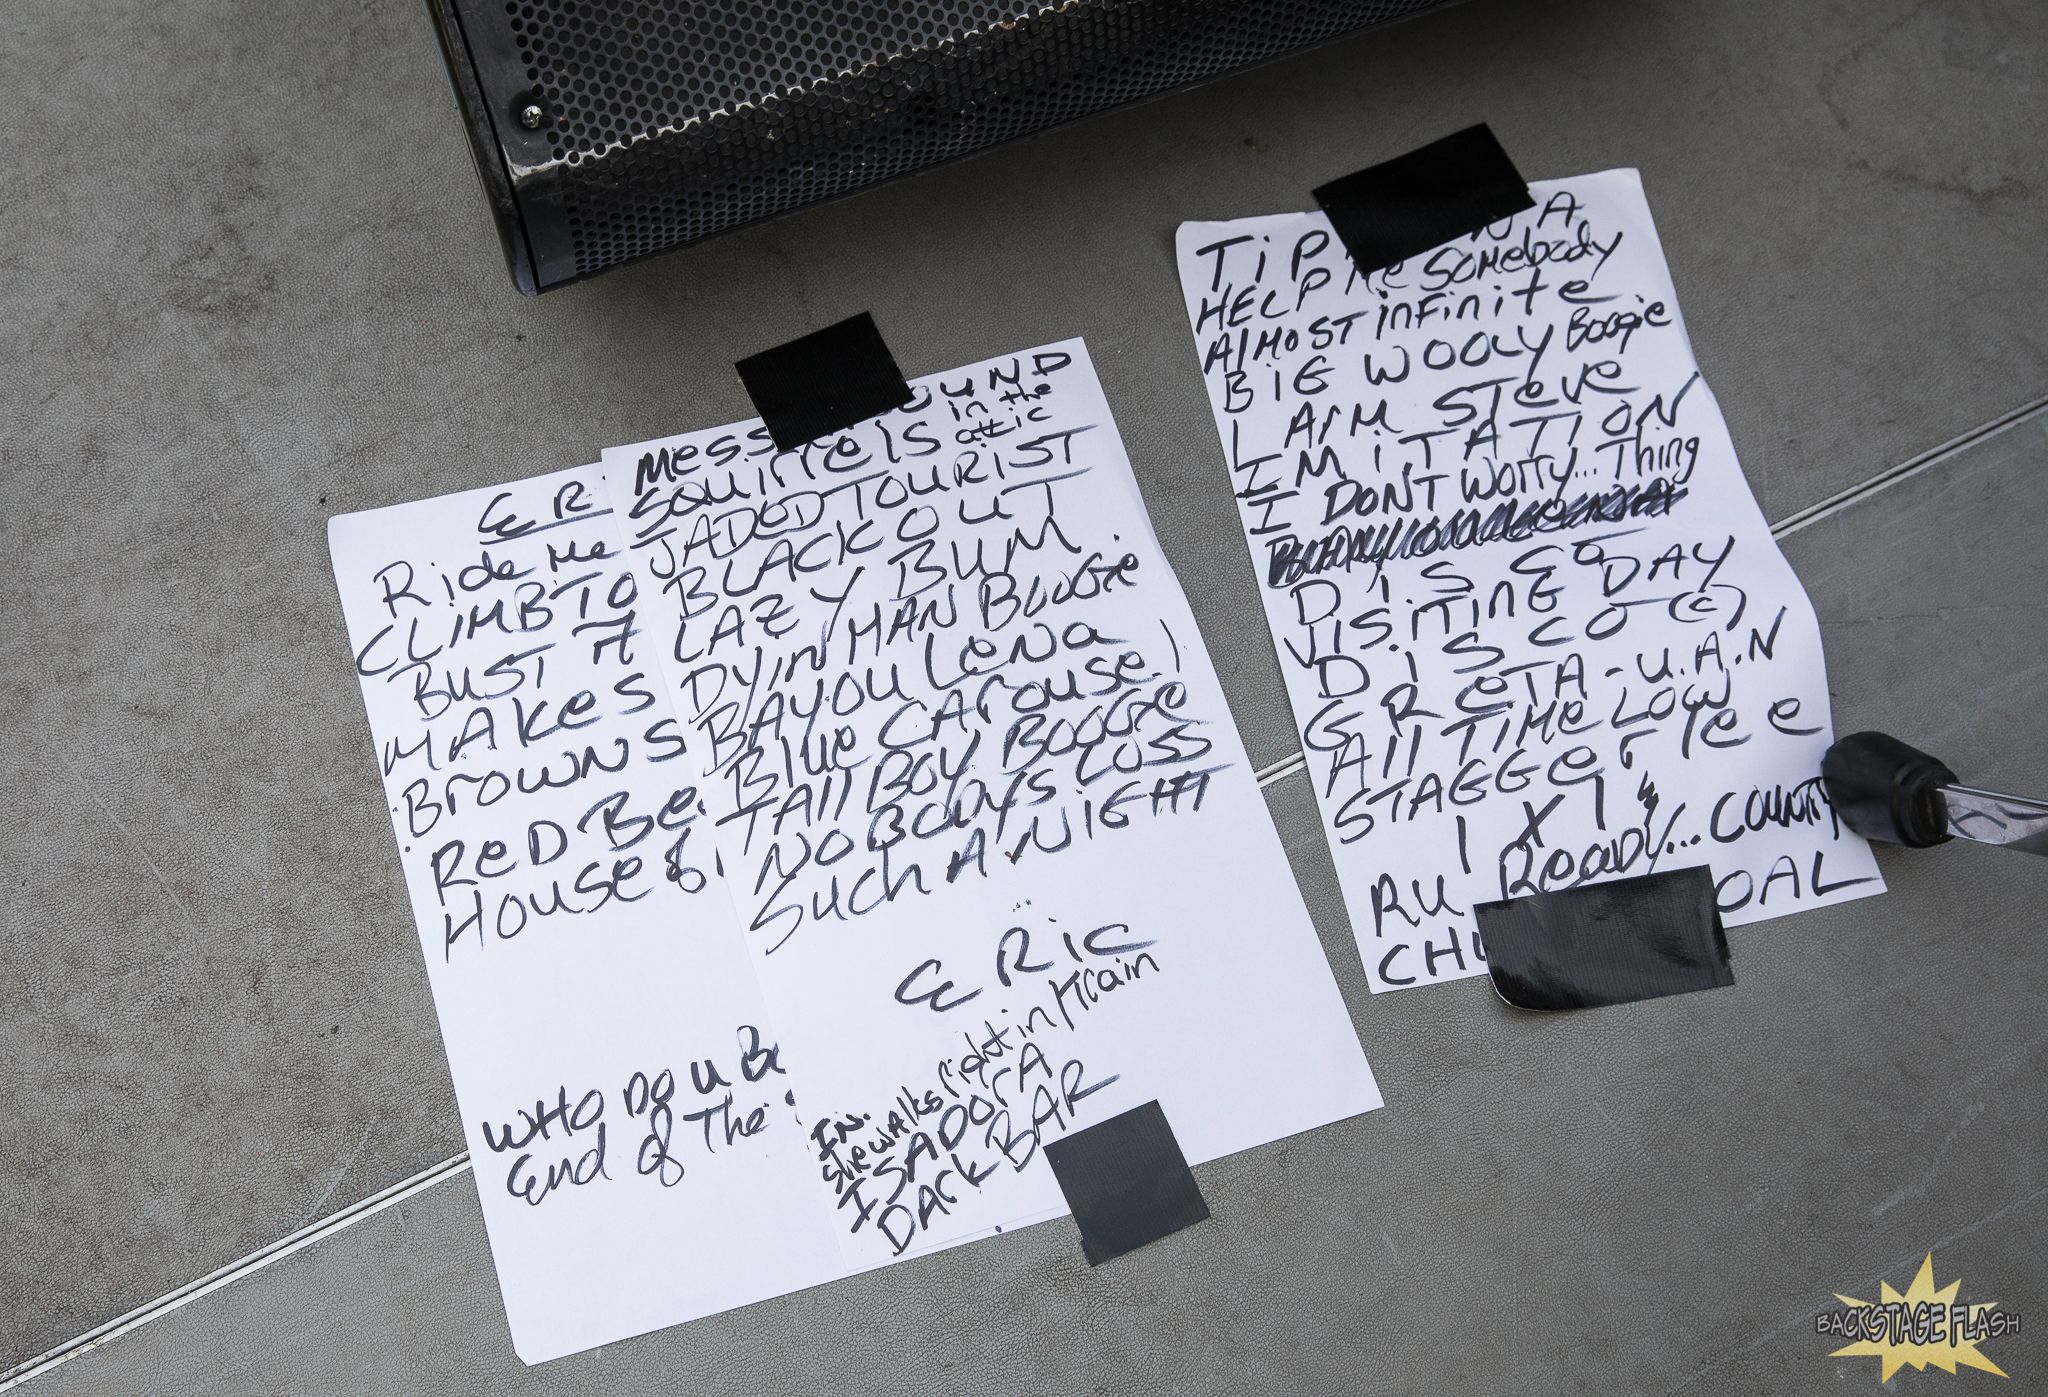 ER
Ride Me
CLIMB TO
BUST A
MAKES
BROWNS
RED Be
House of
WHO DO U Be
End of The
Mess OUND
SQUIrrelS in the attic
JADED TOURIST
BLACKOUT
LAZY BUM
DYIN MAN BOOGIE
BAYOU LeNa
BLUe CArouseL
TAll BOY BOOGIE
NOBODYS LOSS
SUCH A NIGHT
ERic
IN.
She WAlks right in/Train
ISADORA
DARk BAR
TiP A
HELP Me SOMebody
AlMOST inFinite
BIG WOOLY Boogie
I AM STeVe
IMiTATION
I DONT WOrry... Thing
DISCO
VISITING DAY
DISCO (C)
GReTA - U.A.N
All TIMe LOW
STAGGer lee
1 X 1
RU Ready... COUNTY
CHU OAL
BACKSTAGE FLASH